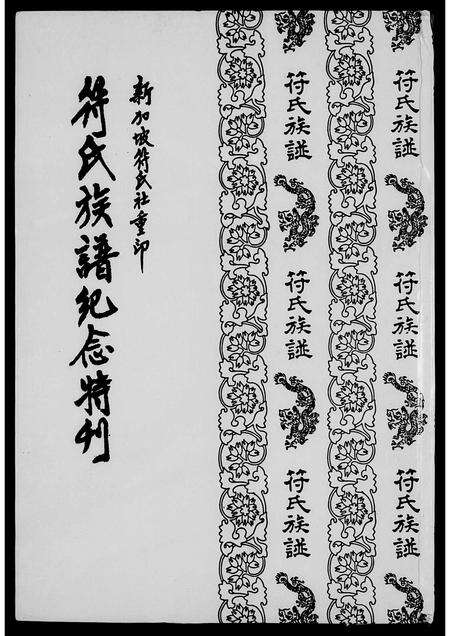 新加坡符氏社重印
符氏族譜紀念特刊
符氏族譜
符氏族譜
符氏族譜
符氏族譜
符氏族譜
符氏族譜